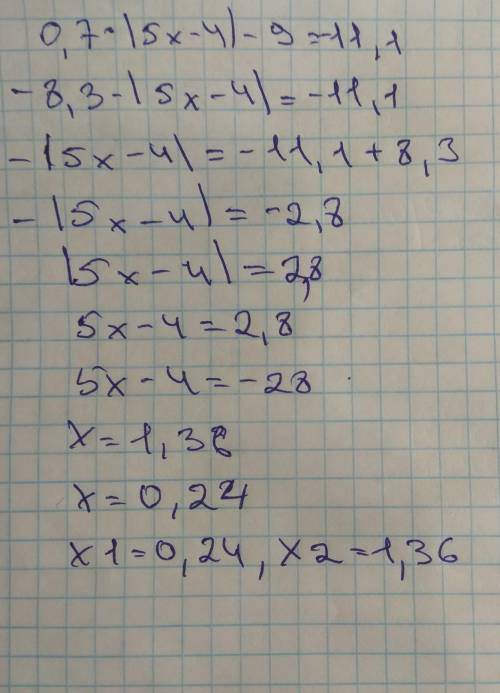 0,7-|5x-4|-9=-11,1
-8,3-|5x-4|=-11,1
-|5x-4|=-11,1+8,3
-|5x-4|=-2,8
|5x-4|=2,8
5x-4=2,8
5x-4=-28
x=1,36
x=0,24
x1=0,24, x2=1,36